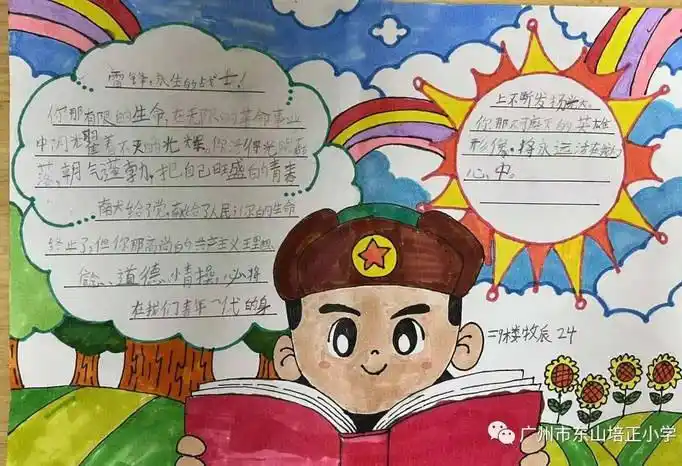 雷锋,永生的战士!
你那有限的生命,在无限的革命事业
中闪光耀着不灭的光辉,你
落,朝气蓬勃,把自己旺盛的青春
献给了党,献给了人民!你的生命
终止了,但你那高尚的共产主义
念、道德情操,必将
在我们青年一代的身
上不断发扬光大。
你那不朽的英雄
形像,将永远活在我们
心中。
24
广州市东山培正小学